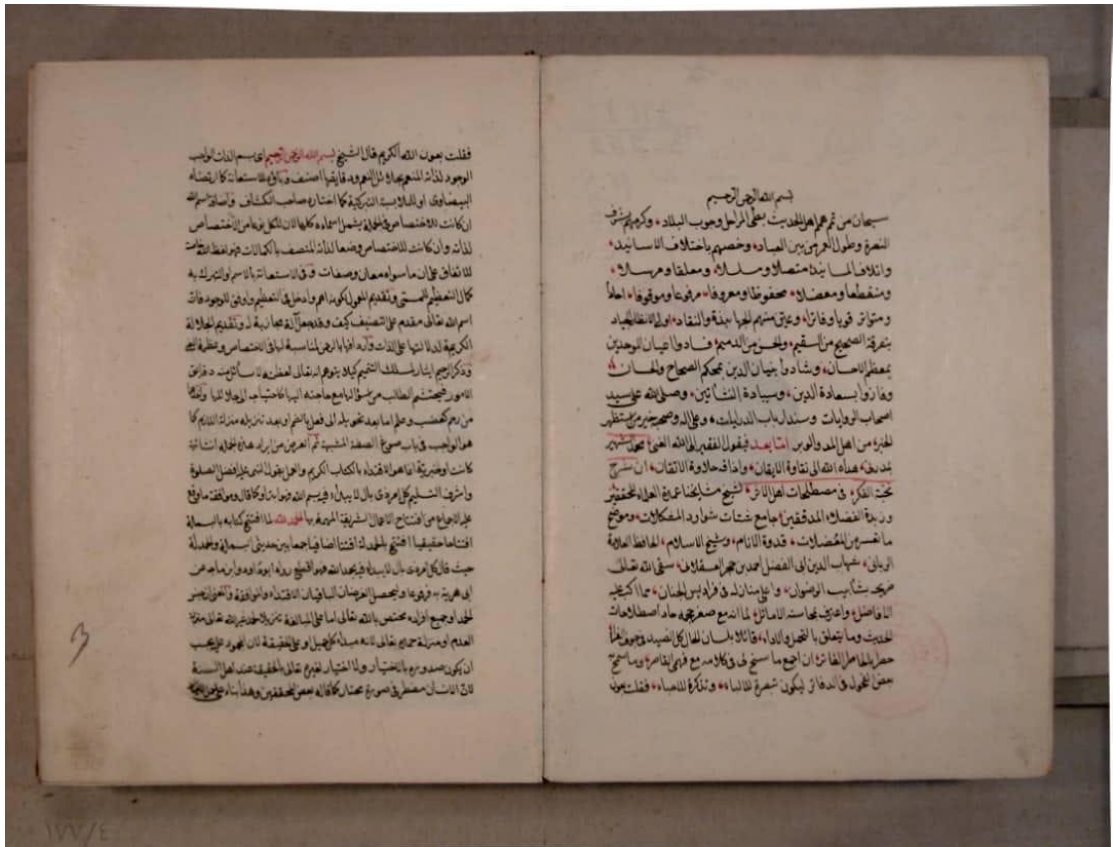 بسم الله الرحمن الرحيم
سبحان من تمم همم اهل الحديث بعلى المراحل وجوب البلاد وكرمهم بشرف
النصرة وطول العمر من بين العباد وخصهم باختلاف الاسانيد
وائلاف المسانيد متصلا ومسلسلا ومعلقا ومرسلا
ومنقطعا ومعضلا محفوظا ومعروفا مرفوعا وموقوفا احادا
ومتواتر قويا وفاترا منهم الجهابذة والنقاد اولى الانظار الجياد
بتفرقة الصحيح من السقيم والحسن من الذميم فسادوا اعيان الموحدين
بمعظم الاحسان وشادوا بنيان الدين بمحكم الصحاح والحسان
وفازوا بسعادة الدين وسيادة النشأتين وصلى الله على سيد
اصحاب الروايات وسندل باب الدرايات وعلى اله وصحبه خير من
من اهل المدر والوبر اما بعد فيقول الفقير الى الله الغنى محمد الشهير
هداه الله الى نقاوة الايقان واذاقه حلاوة الاتقان ان شرح
نخبة الفكر فى مصطلحات اهل الاثر لشيخ مشايخنا عمدة العلماء المحققين
وزبدة الفضلاء المدققين جامع شتات شوارد المشكلات وموضح
ما تعسر من المعضلات قدوة الانام وشيخ الاسلام الحافظ العلامة
الربانى شهاب الدين ابى الفضل احمد بن حجر العسقلانى سقى الله تعالى
ضريحه شآبيب الرضوان واعلى منازله فى فراديس الجنان مما اكب عليه
الافاضل واعترف بمحاسنه الاماثل لما انه مع صغر حجمه حاو اصطلاحات
الحديث وما يتعلق بالتحمل والاداء قائلا بلسان الحال كل الصيد فى جوف الفرا
خطر بالخاطر الفاتر ان اجمع ما سنح لى فى كلامه مع فهمى القاصر وما سنح به
بعض الفحول فى الدفاتر ليكون تبصرة للالباء وتذكرة للاحباء فقلت بعون
فقلت بعون الله الكريم قال الشيخ بسم الله الرحمن الرحيم اى بسم الذات الواجب
الوجود لذاته المنعم بجلائل النعم ودقايقها اصنف وباؤه للاستعانة كما ارتضاه
البيضاوى او للملابسة التبركية كما اختاره صاحب الكشاف واضافة اسم الله
ان كانت للاختصاص فى الجملة يشمل اسماءه كلها لان لكل نوعا من الاختصاص
لذاته وان كانت للاختصاص وضعا لذاته المتصف بالكمالات فهو لفظ الله خاصة
للاتفاق على ان ما سواه معان وصفات وفى الاستعانة بالاسم او التبرك به
كمال التعظيم للمسمى وتقديم المعمول لكونه اهم وادخل فى التعظيم واوفق للوجود فان
اسم الله تعالى مقدم على التصنيف كيف وقد جعل آلة مجازية له وتقديم الجلالة
الكريمة لدلالتها على الذات واردافها بالرحمن لمناسبة لها فى الاختصاص
وذكر الرحيم ايثار لمسلك التتميم كيلا يتوهم انه تعالى لعظمته لا يسأل منه دقائق
الامور فيحتشم الطالب من سؤالها مع حاجته اليها كاحتياجه الى جلالها
من رحم كغضب وعلم اما بعد تحويله الى فعل بالضم او بعد تنزيله منزلة اللازم كما
هو الواجب فى باب صوغ الصفة المشبهة ثم الغرض من ايراد هذه الجملة انشائية
كانت او خبرية انما هو الاقتداء بالكتاب الكريم والعمل بقول النبى عليه افضل الصلوة
واشرف التسليم كل امر ذى بال لا يبدأ فيه ببسم الله فهو ابتر او كما قال وموافقة ما وقع
عليه الاجماع من افتتاح الاعمال الشريفة المهمة بها الحمد لله لما افتتح كتابه بالبسملة
افتتاحا حقيقيا افتتح بالحمدلة افتتاحا اضافيا جمعا بين حديثى البسملة والحمدلة
حيث قال كل امر ذى بال لا يبدأ فيه بحمد الله فهو اقطع رواه ابو داود وابن ماجه عن
ابى هريرة مرفوعا وليحصل الغرضان الباقيان الاقتداء والموافقة
الحمد او جميع افراده مختص بالله تعالى اما على المبالغة تنزيلا لحمد غير الله تعالى منزلة
العدم او منزلة حمده تعالى لانه مبدأ كل جميل او على الحقيقة لان المحمود عليه يجب
ان يكون صدوره بالاختيار ولا اختيار لغيره تعالى بالحقيقة عند اهل السنة
لان الانسان مضطر فى صورة مختار كما قاله بعض المحققين وهذا بناء على